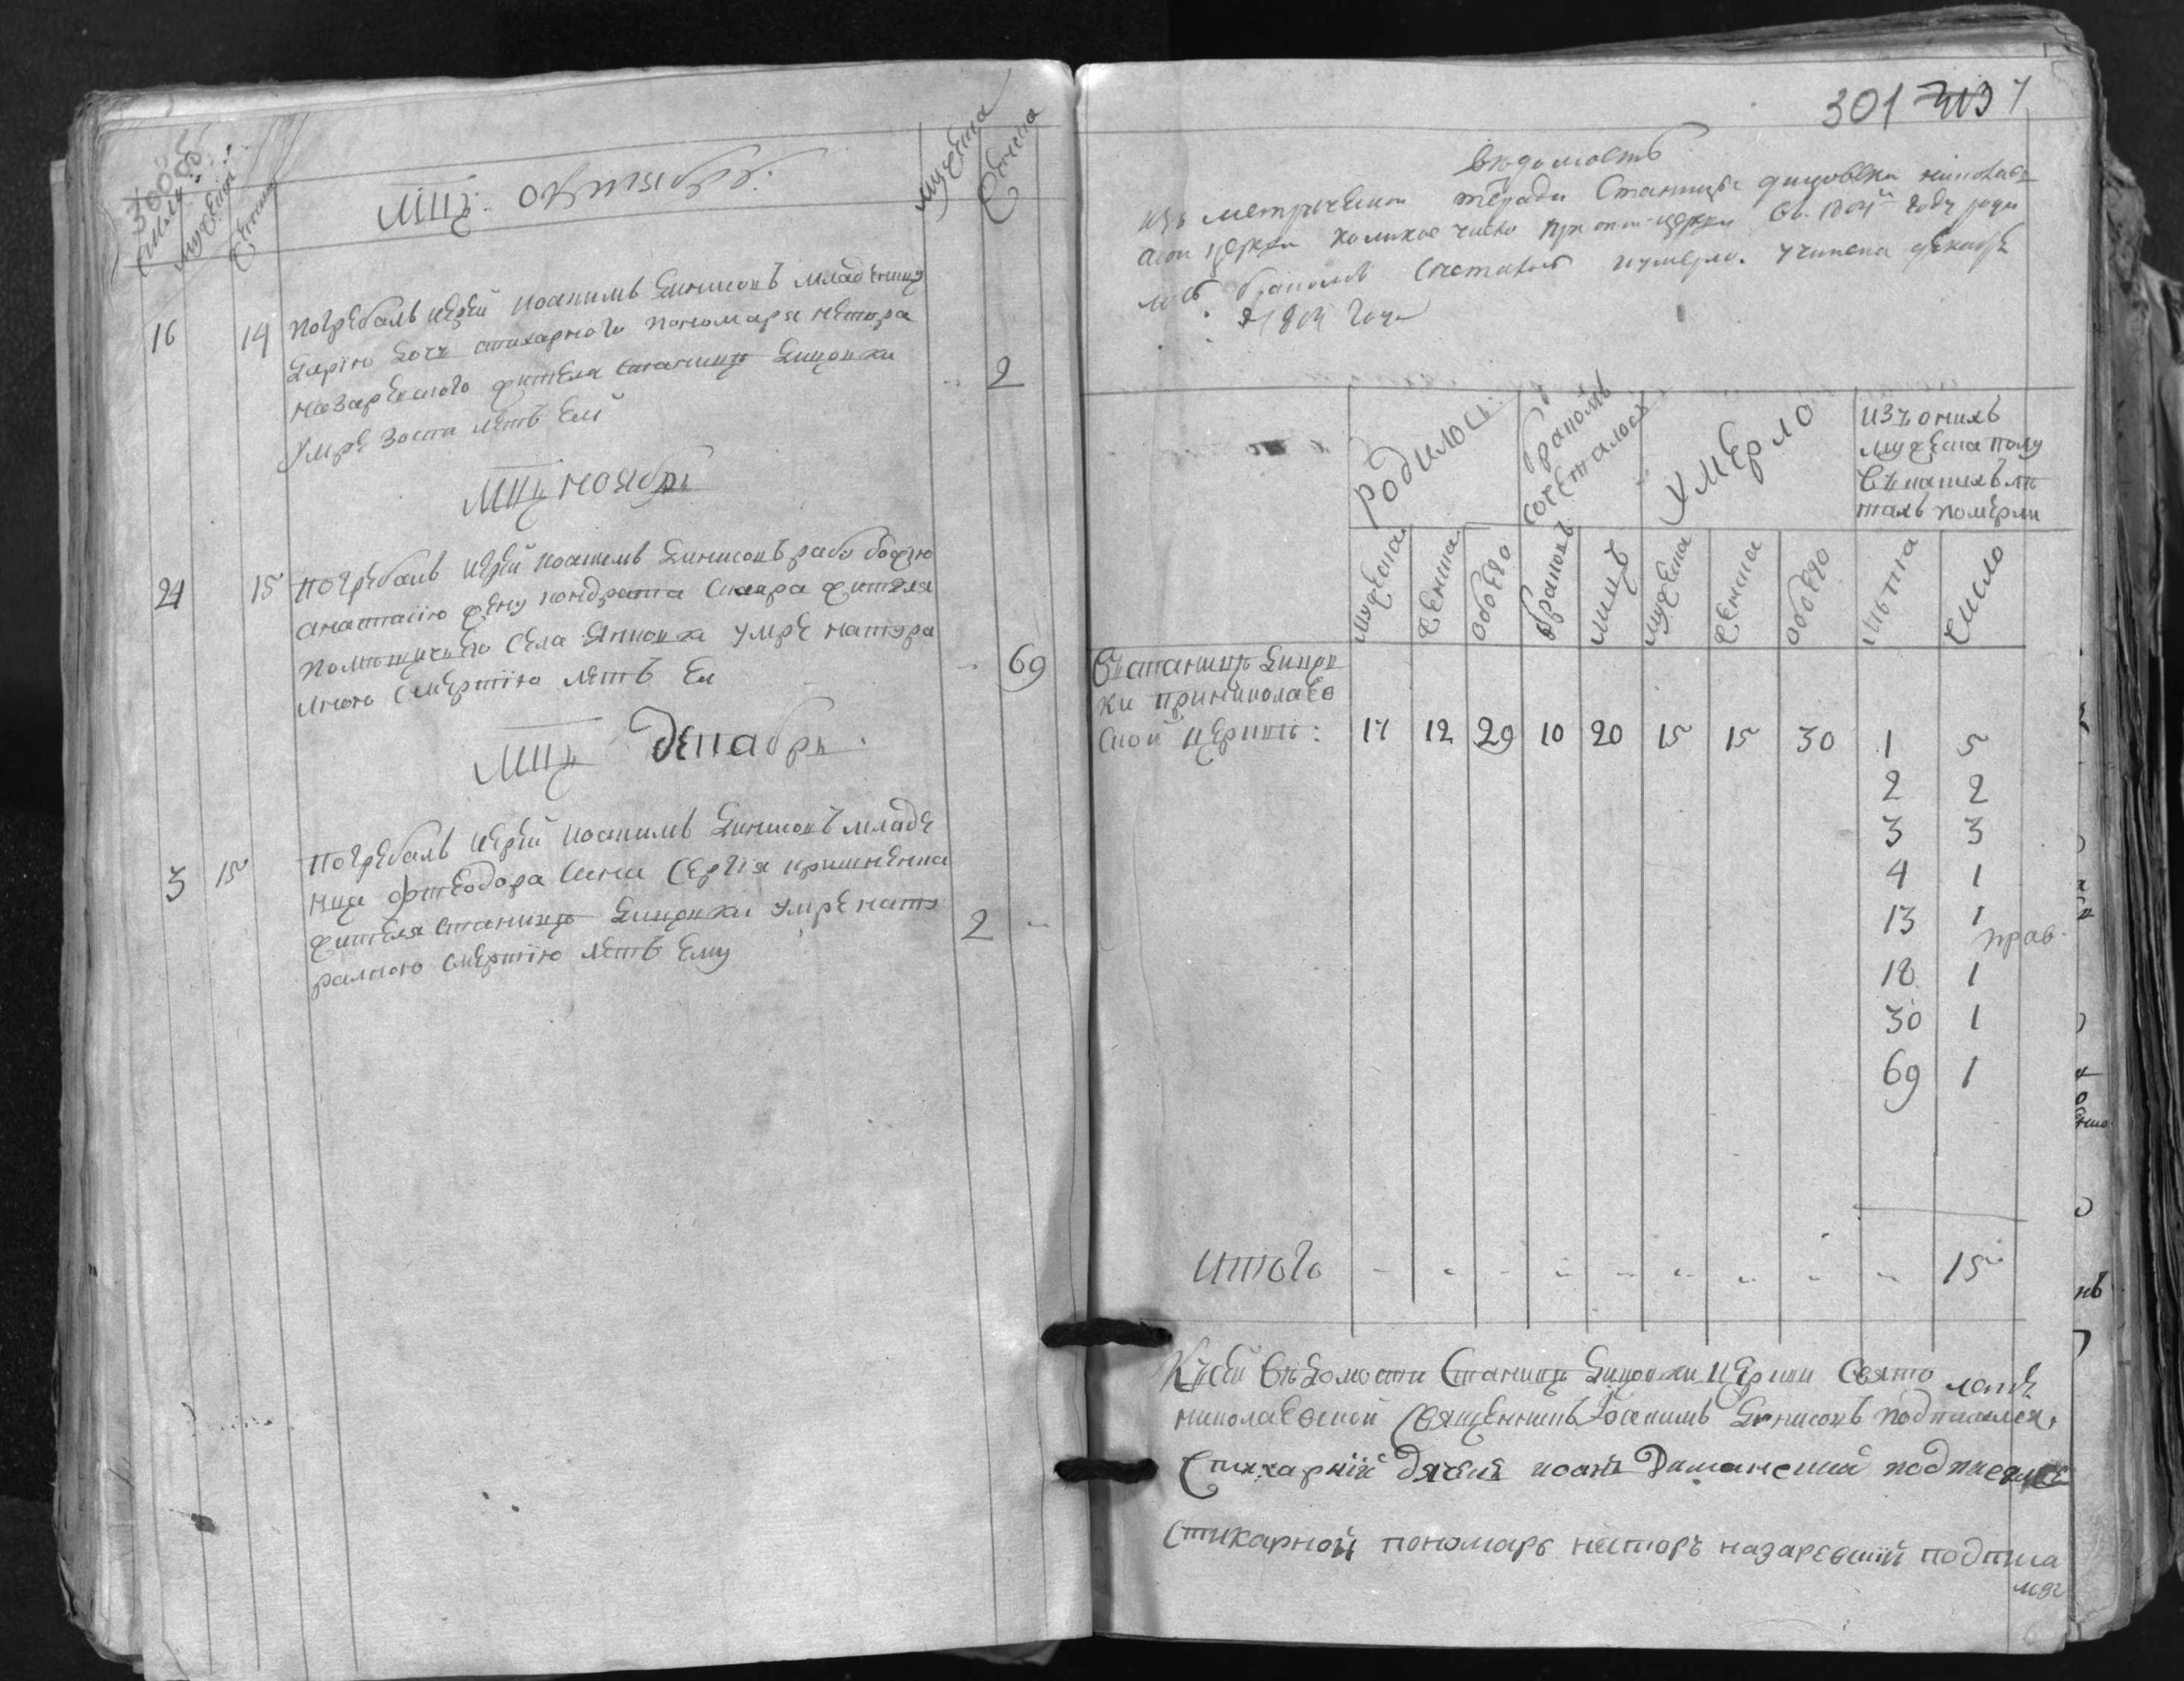 300об
Число
мужеск
женска
мцъ: октябрь:
мужеска
женска
16 14 погребалъ иерей иоакимъ Динисовъ младеницу
Дарїю дочь стихарного пономаря нестора
назаревского жителя станицѣ
умре лѣтъ ей 2
мцъ ноябрь
24 15 погребалъ иерей иоакимъ Динисовъ рабу божію
анастасїю жену кондрата жителя
села умре натура
лною смертїю лѣтъ ея 69
мцъ декабрь
3 15 погребалъ иерей иоакимъ Динисовъ младе
нца феодора сина сергія
жителя станицѣ умре нату
ралною смертїю лѣтъ ему 2
301
вѣдомость
изъ метрической тетради станицы николаев
ской церкви коликое число при оной церкви въ 1804м году роди
лось бракомъ сочеталось и умерло. учинена декабря
1804 года
родилось
бракомъ
сочеталось
умерло
изъ оныхъ
мужеска полу
въ какихъ лѣ
тахъ померли
мужеска женска обоего браковъ лицъ мужеска женска обоего лѣта число
въ станицѣ
ки при николаев
ской церкви: 17 12 29 10 20 15 15 30 1 5
2 2
3 3
4 1
13 1
прав
18 1
30 1
69 1
итого 15
Къ сей вѣдомости станицѣ церкви свято
николаевской священникъ Іоакимъ Динисовъ подписался
стихарній дячекъ иоанъ подписался
стихарной пономарь несторъ назаревскій подписа
лся